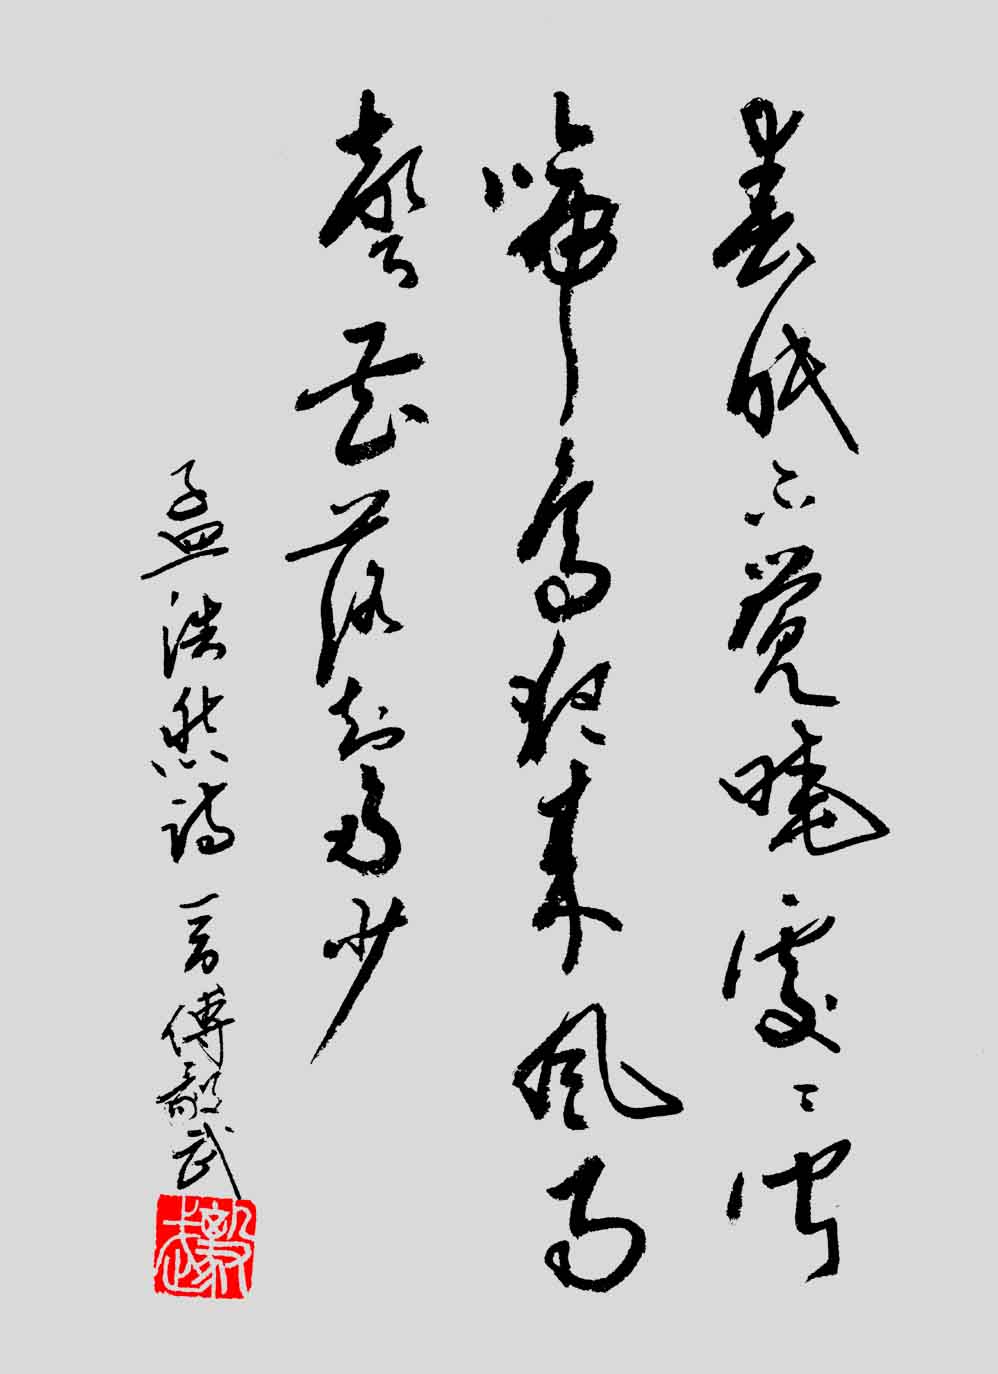 春眠不覺曉處〻聞
啼鳥夜來風雨
聲花落知多少
孟浩然詩 傅毅武
毅武